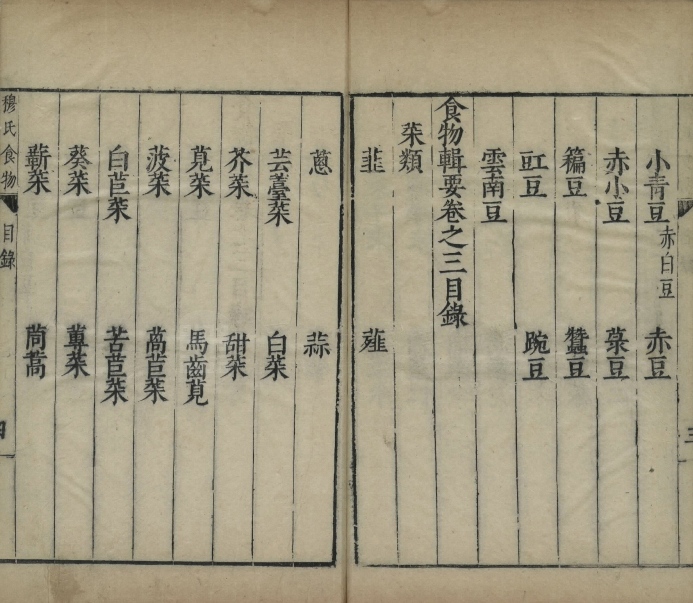 小青豆 赤白豆 赤豆
赤小豆 菉豆
穪豆 蠶豆
豇豆 豌豆
雲南豆
食物輯要卷之三目錄
菜類
韭 薤
蔥 蒜
芸薹菜 白菜
芥菜 甜菜
莧菜 馬齒莧
菠菜 萵苣菜
白苣菜 苦苣菜
葵菜 蓴菜
蘄菜 茼蒿
穆氏食物 目錄